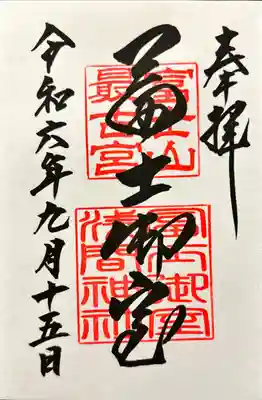 奉拝
富士山
最古宮
富士御室
冨士御室
浅間神社
令和六年九月十五日